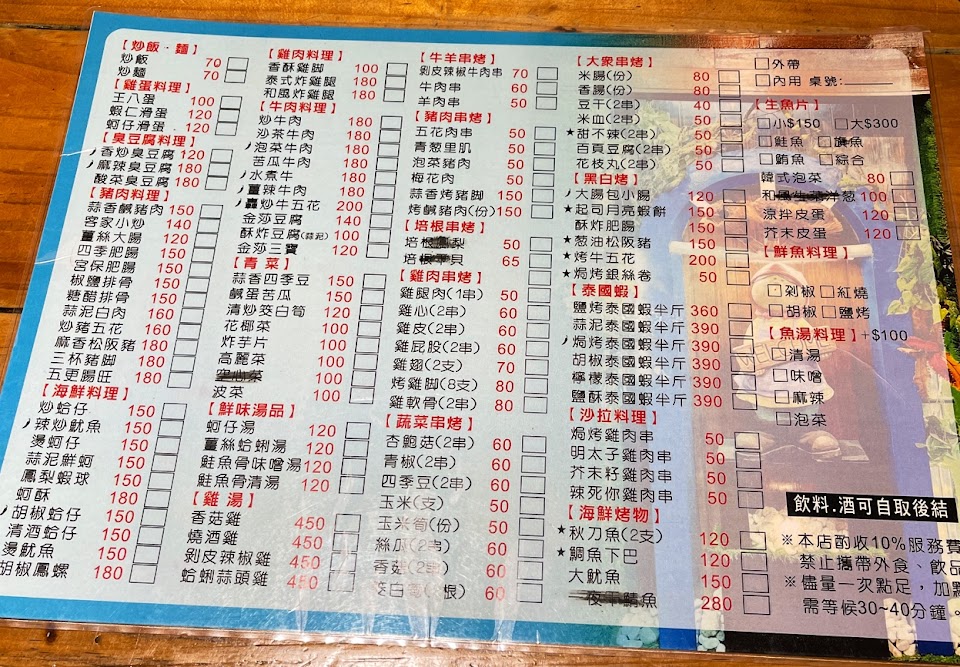 【炒飯・麵】
炒飯 70
炒麵 70
【雞蛋料理】
王八蛋 100
蝦仁滑蛋 120
蚵仔滑蛋 120
【臭豆腐料理】
香炒臭豆腐 120
麻辣臭豆腐 180
酸菜臭豆腐 180
【豬肉料理】
蒜香鹹豬肉 150
客家小炒 140
薑絲大腸 120
四季肥腸 150
宮保肥腸 150
椒鹽排骨 150
糖醋排骨 150
蒜泥白肉 160
炒豬五花 160
麻香松阪豬 180
三杯豬腳 180
五更腸旺 180
【海鮮料理】
炒蛤仔 150
辣炒魷魚 150
燙蚵仔 150
蒜泥鮮蚵 150
鳳梨蝦球 150
蚵酥 180
胡椒蛤仔 150
清酒蛤仔 150
燙魷魚 150
胡椒鳳螺 180
【雞肉料理】
香酥雞腳 100
泰式炸雞腿 180
和風炸雞腿 180
【牛肉料理】
炒牛肉 180
沙茶牛肉 180
泡菜牛肉 180
苦瓜牛肉 180
水煮牛 180
薑辣牛肉 180
轟炒牛五花 200
金莎豆腐 140
酥炸豆腐(蒜泥) 100
金莎三寶 120
【青菜】
蒜香四季豆 150
鹹蛋苦瓜 150
清炒筊白筍 120
花椰菜 100
炸芋片 100
高麗菜 100
空心菜 100
波菜 100
【鮮味湯品】
蚵仔湯 120
薑絲蛤蜊湯 120
鮭魚骨味噌湯 120
鮭魚骨清湯 120
【雞湯】
香菇雞 450
燒酒雞 450
剝皮辣椒雞 450
蛤蜊蒜頭雞 450
【牛羊串烤】
剝皮辣椒牛肉串 70
牛肉串 60
羊肉串 50
【豬肉串烤】
五花肉串 50
青葱里肌 50
泡菜豬肉 50
梅花肉 50
蒜香烤豬腳 150
烤鹹豬肉(份) 150
【培根串烤】
培根 50
培根 65
【雞肉串烤】
雞腿肉(1串) 50
雞心(2串) 60
雞皮(2串) 60
雞屁股(2串) 60
雞翅(2支) 70
烤雞腳(8支) 80
雞軟骨(2串) 80
【蔬菜串烤】
杏鮑菇(2串) 60
青椒(2串) 60
四季豆(2串) 60
玉米(支) 50
玉米筍(份) 50
絲瓜(2串) 60
香菇(2串) 60
筊白筍(2根) 60
【大眾串烤】
米腸(份) 80
香腸(份) 80
豆干(2串) 40
米血(2串) 50
★甜不辣(2串) 50
百頁豆腐(2串) 50
花枝丸(2串) 50
【黑白烤】
大腸包小腸 120
★起司月亮蝦餅 150
酥炸肥腸 150
★葱油松阪豬 150
★烤牛五花 200
★焗烤銀絲卷 50
【泰國蝦】
鹽烤泰國蝦半斤 360
蒜泥泰國蝦半斤 390
焗烤泰國蝦半斤 390
胡椒泰國蝦半斤 390
檸檬泰國蝦半斤 390
鹽酥泰國蝦半斤 390
【沙拉料理】
焗烤雞肉串 50
明太子雞肉串 50
芥末籽雞肉串 50
辣死你雞肉串 50
【海鮮烤物】
★秋刀魚(2支) 120
★鯛魚下巴 120
大魷魚 150
一夜干鯖魚 280
外帶
內用 桌號:
【生魚片】
小$150 大$300
鮭魚 旗魚
鮪魚 綜合
韓式泡菜 80
和風生菜洋葱 100
涼拌皮蛋 120
芥末皮蛋 120
【鮮魚料理】
剁椒 紅燒
胡椒 鹽烤
【魚湯料理】+$100
清湯
味噌
麻辣
泡菜
飲料.酒可自取後結
※本店酌收10%服務費
禁止攜帶外食、飲品
※儘量一次點足，加點
需等候30~40分鐘。